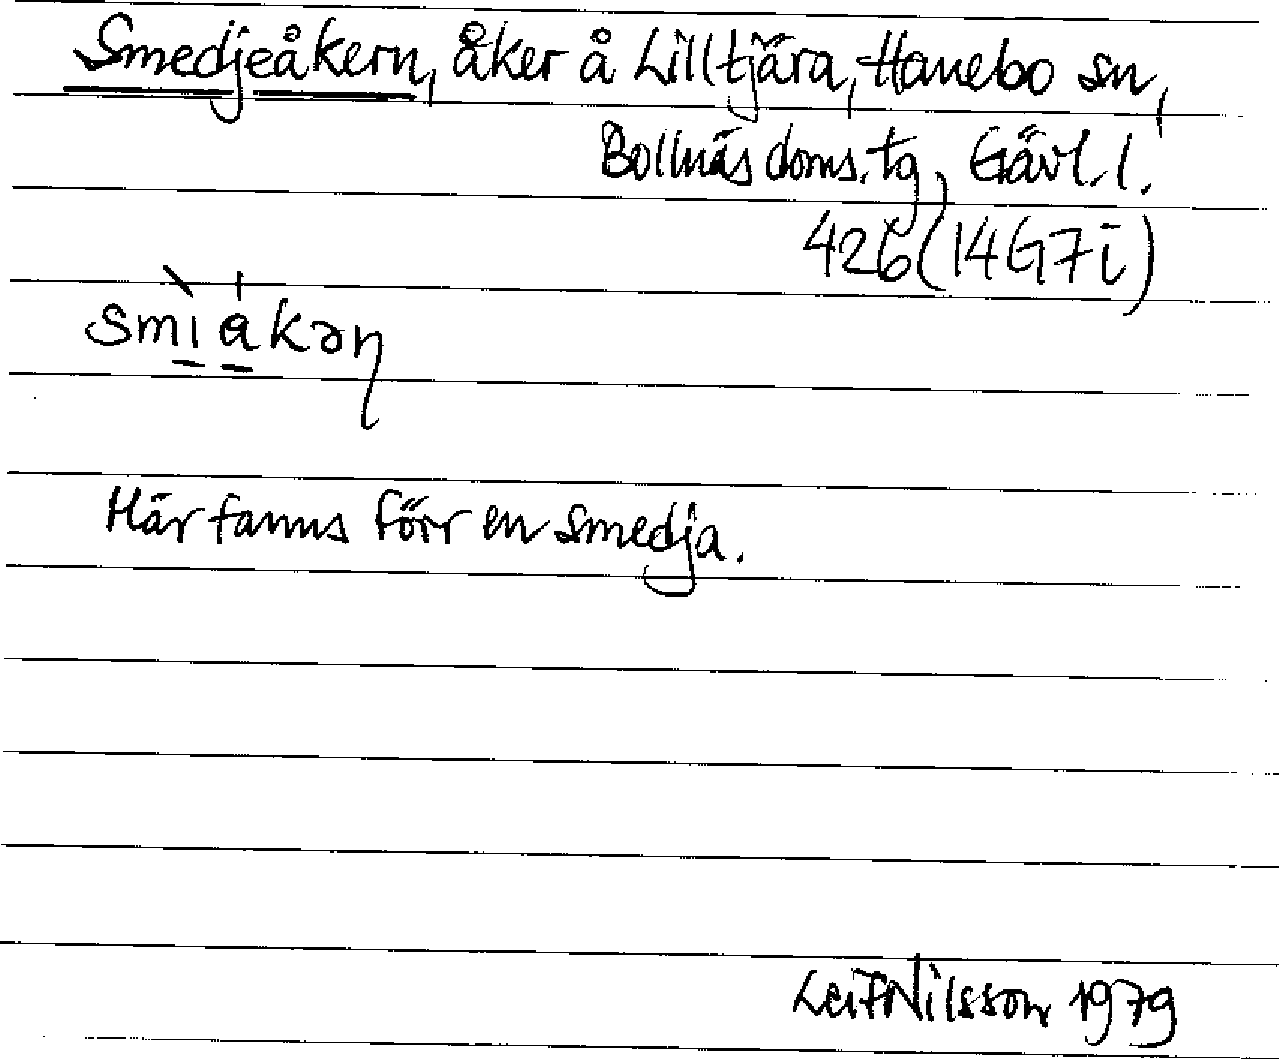 Smedjeåkern, åker å Lilltjära, Hanebo sn,
Bollnäs doms. tg, Gävl. l.
426 (14G7i)
smìåkəɳ
Här fanns förr en smedja.
Leif Nilsson 1979